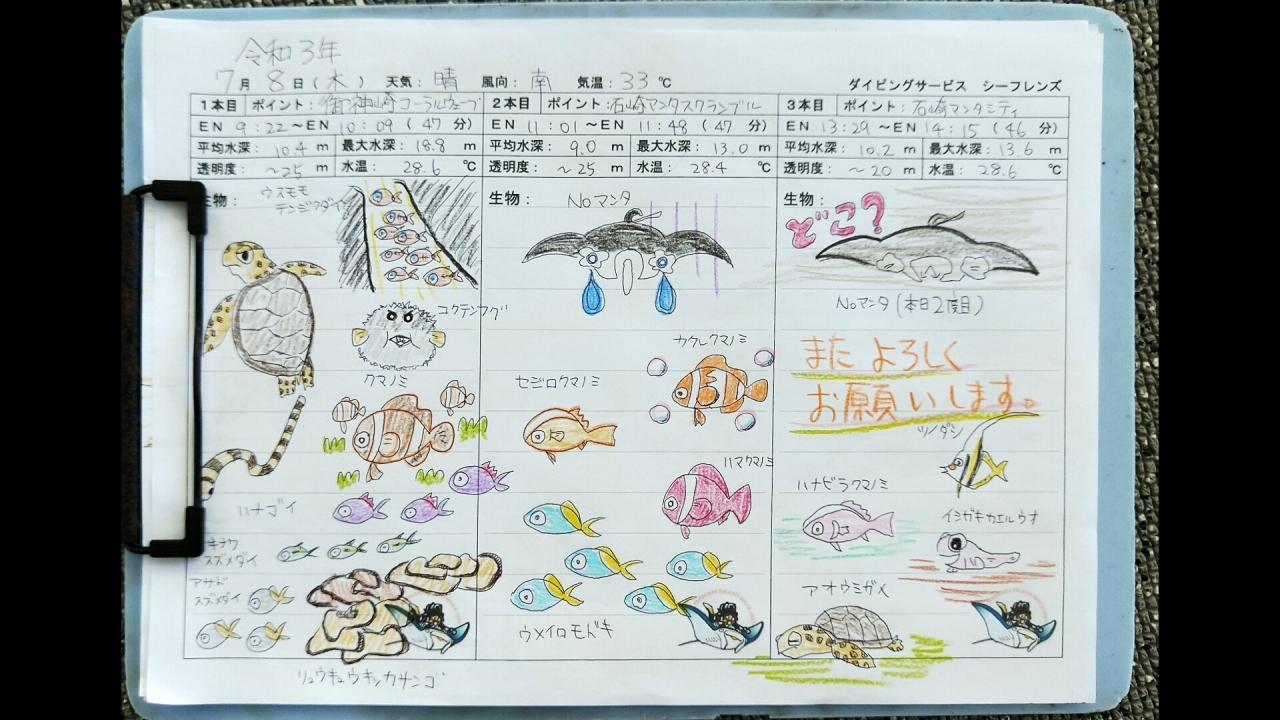 令和3年
7月 8日(木) 天気: 晴 風向: 南 気温: 33℃ ダイビングサービス シーフレンズ
1本目 ポイント: 御神崎コーラルウェーブ
EN 9:22~EN 10:09 (47分)
平均水深: 10.4 m 最大水深: 18.8 m
透明度: ~25 m 水温: 28.6 ℃
生物: ウスモモ
テンジクダイ
コクテンフグ
クマノミ
ハナゴイ
キナワ
スズメダイ
アサド
スズメダイ
リュウキュウキッカサンゴ
2本目 ポイント: 石崎マンタスクランブル
EN 11:01~EN 11:48 (47分)
平均水深: 9.0 m 最大水深: 13.0 m
透明度: ~25 m 水温: 28.4 ℃
生物: Noマンタ
カクレクマノミ
セジロクマノミ
ハマクマノミ
ウメイロモドキ
3本目 ポイント: 石崎マンタシティ
EN 13:29~EN 14:15 (46分)
平均水深: 10.2 m 最大水深: 13.6 m
透明度: ~20 m 水温: 28.6 ℃
生物:
どこ?
Noマンタ(本日2度目)
また よろしく
お願いします。
ツノダシ
ハナビラクマノミ
イシガキカエルウオ
アオウミガメ